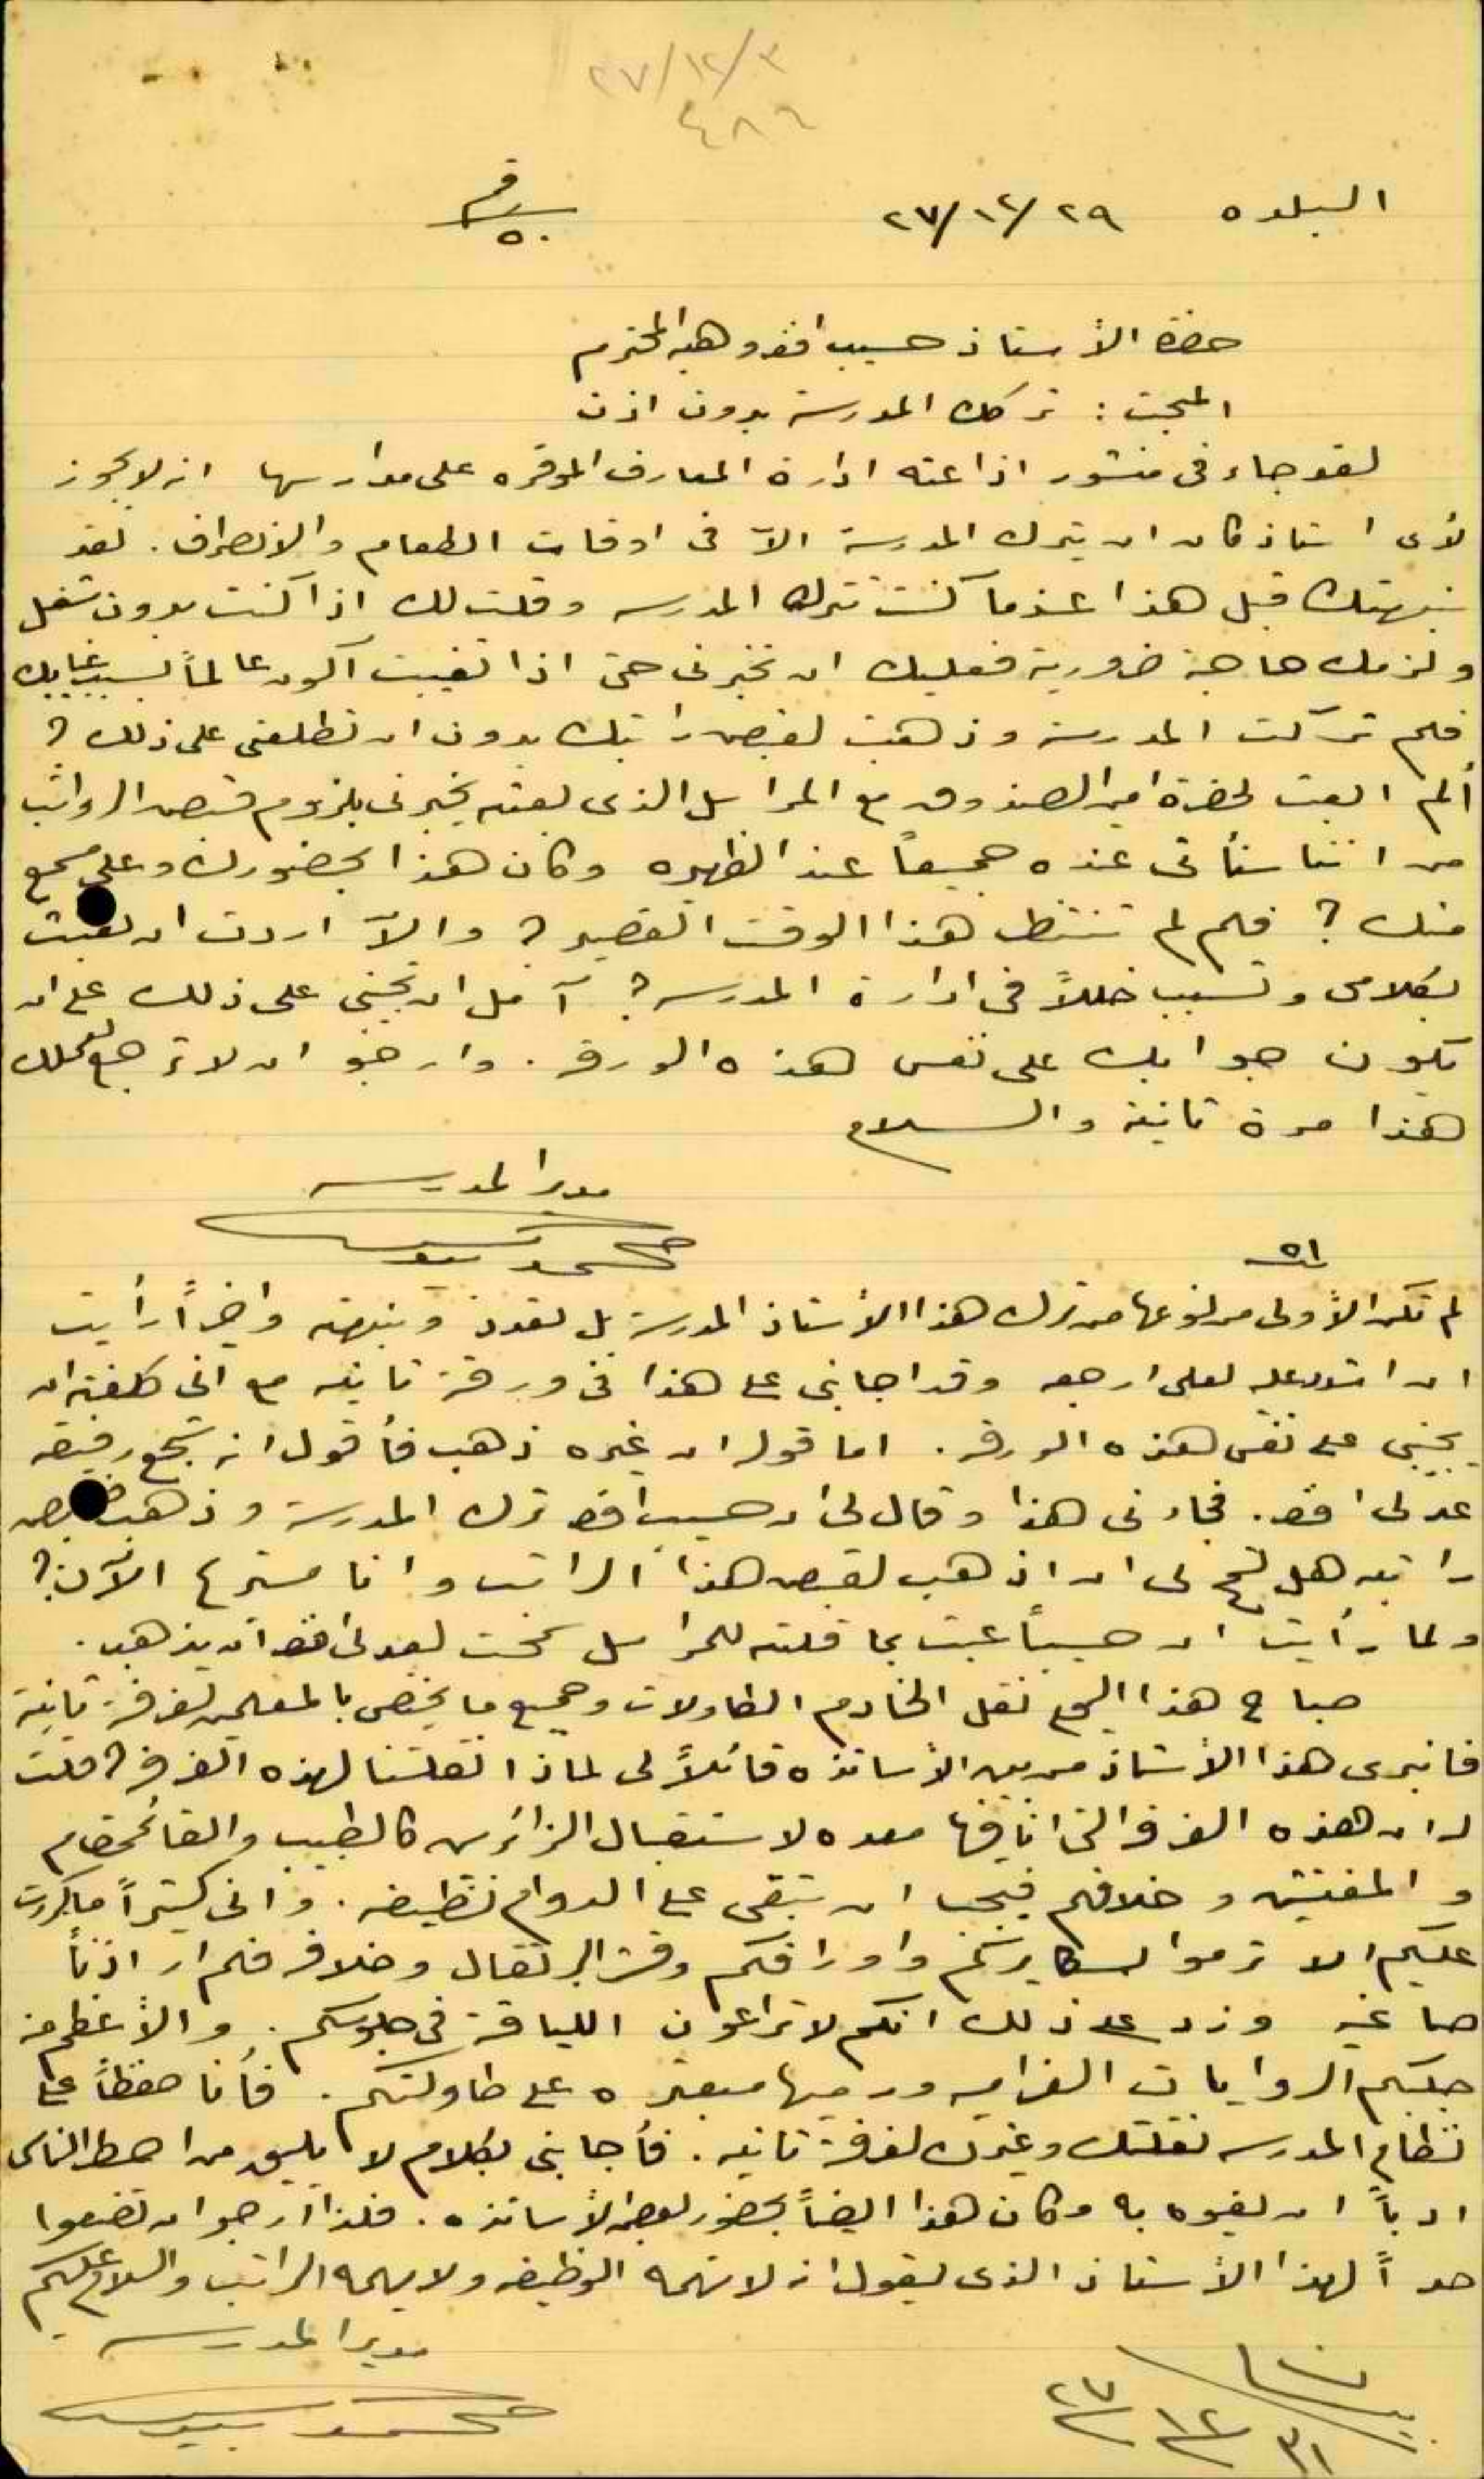 ٢٧/١٢/٣
٤٨٦
البلده ٢٧/١٢/٢٩
رقم
٥٠
حضرة الأستاذ حسيب افندي وهبه المحترم
المبحث : تركك المدرسة بدون اذن
لقد جاء في منشور اذاعته ادارة المعارف الموقره على مدارسها انه لا يجوز
لأى استاذ كان ان يترك المدرسة الاّ في اوقات الطعام والانصراف . لقد
نبهتك قبل هذا عندما كنت تترك المدرسه وقلت لك اذا كنت بدون شغل
ولزمك حاجة ضرورية فعليك ان تخبرنى حتى اذا تغيبت اكون عالماً بسبب غيابك
فلم تركت المدرسة وذهبت لقبض راتبك بدون ان تطلعنى على ذلك ؟
ألم ابعث لحضرة امين الصندوق مع المراسل الذى بعثه يخبرنى بلزوم قبض الرواتب
من اننا سنأتى عنده جميعاً عند الظهيره وكان هذا بحضورك وعلى مسمع
منك ؟ فلم لم تنتظر هذا الوقت القصير ؟ والاّ اردت ان تعبث
بكلامى وتسبب خللاً في ادارة المدرسه ؟ آمل ان تجيبنى على ذلك على ان
يكون جوابك على نفس هذه الورقه . وارجو ان لا ترجع لعملك
هذا مرة ثانية والسلام
مدير المدرسه
محمد
٥١
لم تكن الأولى من نوعها من ترك هذا الأستاذ المدرسة بل تعددت ونبهته واخيراً رأيت
ان اشدد عليه لعلى ارجعه وقد اجابنى على هذا في ورقة ثانيه مع انى كلفته ان
يجيبنى على نفس هذه الورقه . اما قوله ان غيره ذهب فأقول انه شجع رفيقه
عدلى افندي . فجاءنى هذا وقال لى ان حسيب افندي ترك المدرسة وذهب لقبض
راتبه هل تسمح لى ان اذهب لقبض هذا الراتب وانا مستريح الآن ؟
ولما رأيت ان حسيباً عبث بما قلته للمراسل سمحت لعدلى افندي ان يذهب .
صباح هذا اليوم نقل الخادم الطاولات وجميع ما يختص بالمعلمين لغرفة ثانية
فانبرى هذا الأستاذ من بين الأساتذه قائلاً لى لماذا نقلتنا لهذه الغرفه ؟ قلت
له ان هذه الغرفه التى انا فيها معده لاستقبال الزائرين كالطبيب والقائمقام
والمفتش وخلافهم فيجب ان تبقى على الدوام نظيفه . وانى كثيراً ما كررت
عليكم الا ترموا سكايركم واوراقكم وقشر البرتقال وخلافه فلم ار اذناً
صاغيه وزد على ذلك انكم لا تراعون اللياقة في جلوسكم . والأعظم منه
جلبكم الروايات الغراميه ورميها مبعثره على طاولتكم . فأنا حفظاً على
نظام المدرسه نقلتك وغيرك لغرفة ثانيه . فأجابنى بكلام لا يليق من احط الناس
ادباً ان يفوه به وكان هذا ايضاً بحضور بعض الأساتذه . فلذا ارجو ان تضعوا
حداً لهذا الأستاذ الذى يقول انه لا تهمه الوظيفه ولا يهمه الراتب والسلام عليكم
مدير المدرسه
محمد
٢٧
١٢
٣١